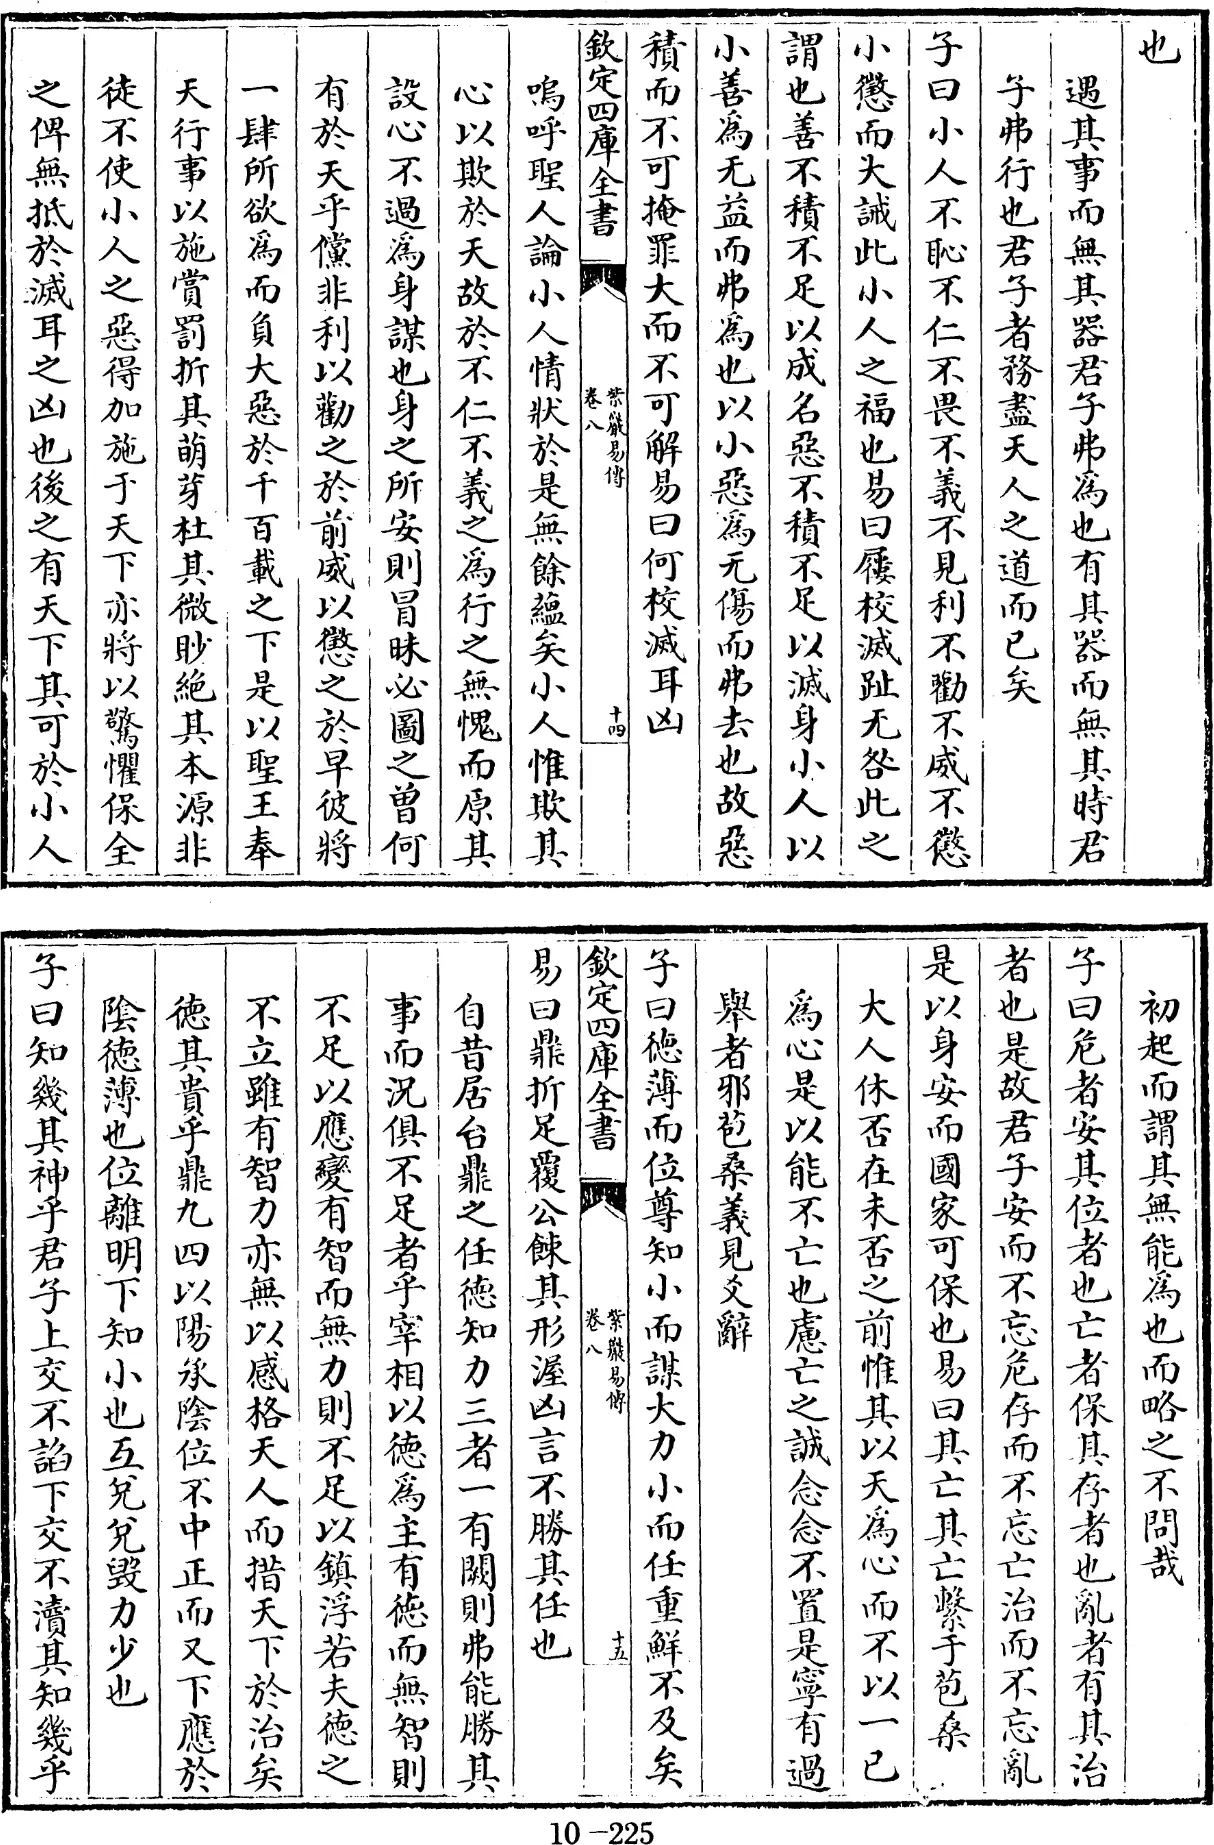 也
遇其事而無其器君子弗爲也有其器而無其時君
子弗行也君子者務盡天人之道而已矣
子曰小人不恥不仁不畏不義不見利不勸不威不懲
小懲而大誡此小人之福也易曰屨校滅趾无咎此之
謂也善不積不足以成名惡不積不足以滅身小人以
小善爲无益而弗爲也以小惡爲无傷而弗去也故惡
積而不可掩罪大而不可解易曰何校滅耳凶
欽定四庫全書
紫巖易傳
卷八
十四
嗚呼聖人論小人情狀於是無餘蘊矣小人惟欺其
心以欺於天故於不仁不義之爲行之無愧而原其
設心不過爲身謀也身之所安則冒昧必圖之曾何
有於天乎儻非利以勸之於前威以懲之於早彼將
一肆所欲爲而負大惡於千百載之下是以聖王奉
天行事以施賞罰折其萌芽杜其微眇絶其本源非
徒不使小人之惡得加施于天下亦將以驚懼保全
之俾無抵於滅耳之凶也後之有天下其可於小人
初起而謂其無能爲也而略之不問哉
子曰危者安其位者也亡者保其存者也亂者有其治
者也是故君子安而不忘危存而不忘亡治而不忘亂
是以身安而國家可保也易曰其亡其亡繫于苞桑
大人休否在未否之前惟其以天爲心而不以一已
爲心是以能不亡也慮亡之誠念念不置是寧有過
舉者邪苞桑義見爻辭
子曰德薄而位尊知小而謀大力小而任重鮮不及矣
欽定四庫全書
紫巖易傳
卷八
十五
易曰鼎折足覆公餗其形渥凶言不勝其任也
自昔居台鼎之任德知力三者一有闕則弗能勝其
事而況俱不足者乎宰相以德爲主有德而無智則
不足以應變有智而無力則不足以鎮浮若夫德之
不立雖有智力亦無以感格天人而措天下於治矣
德其貴乎鼎九四以陽承陰位不中正而又下應於
陰德薄也位離明下知小也互兌兌毀力少也
子曰知幾其神乎君子上交不諂下交不瀆其知幾乎
10-225